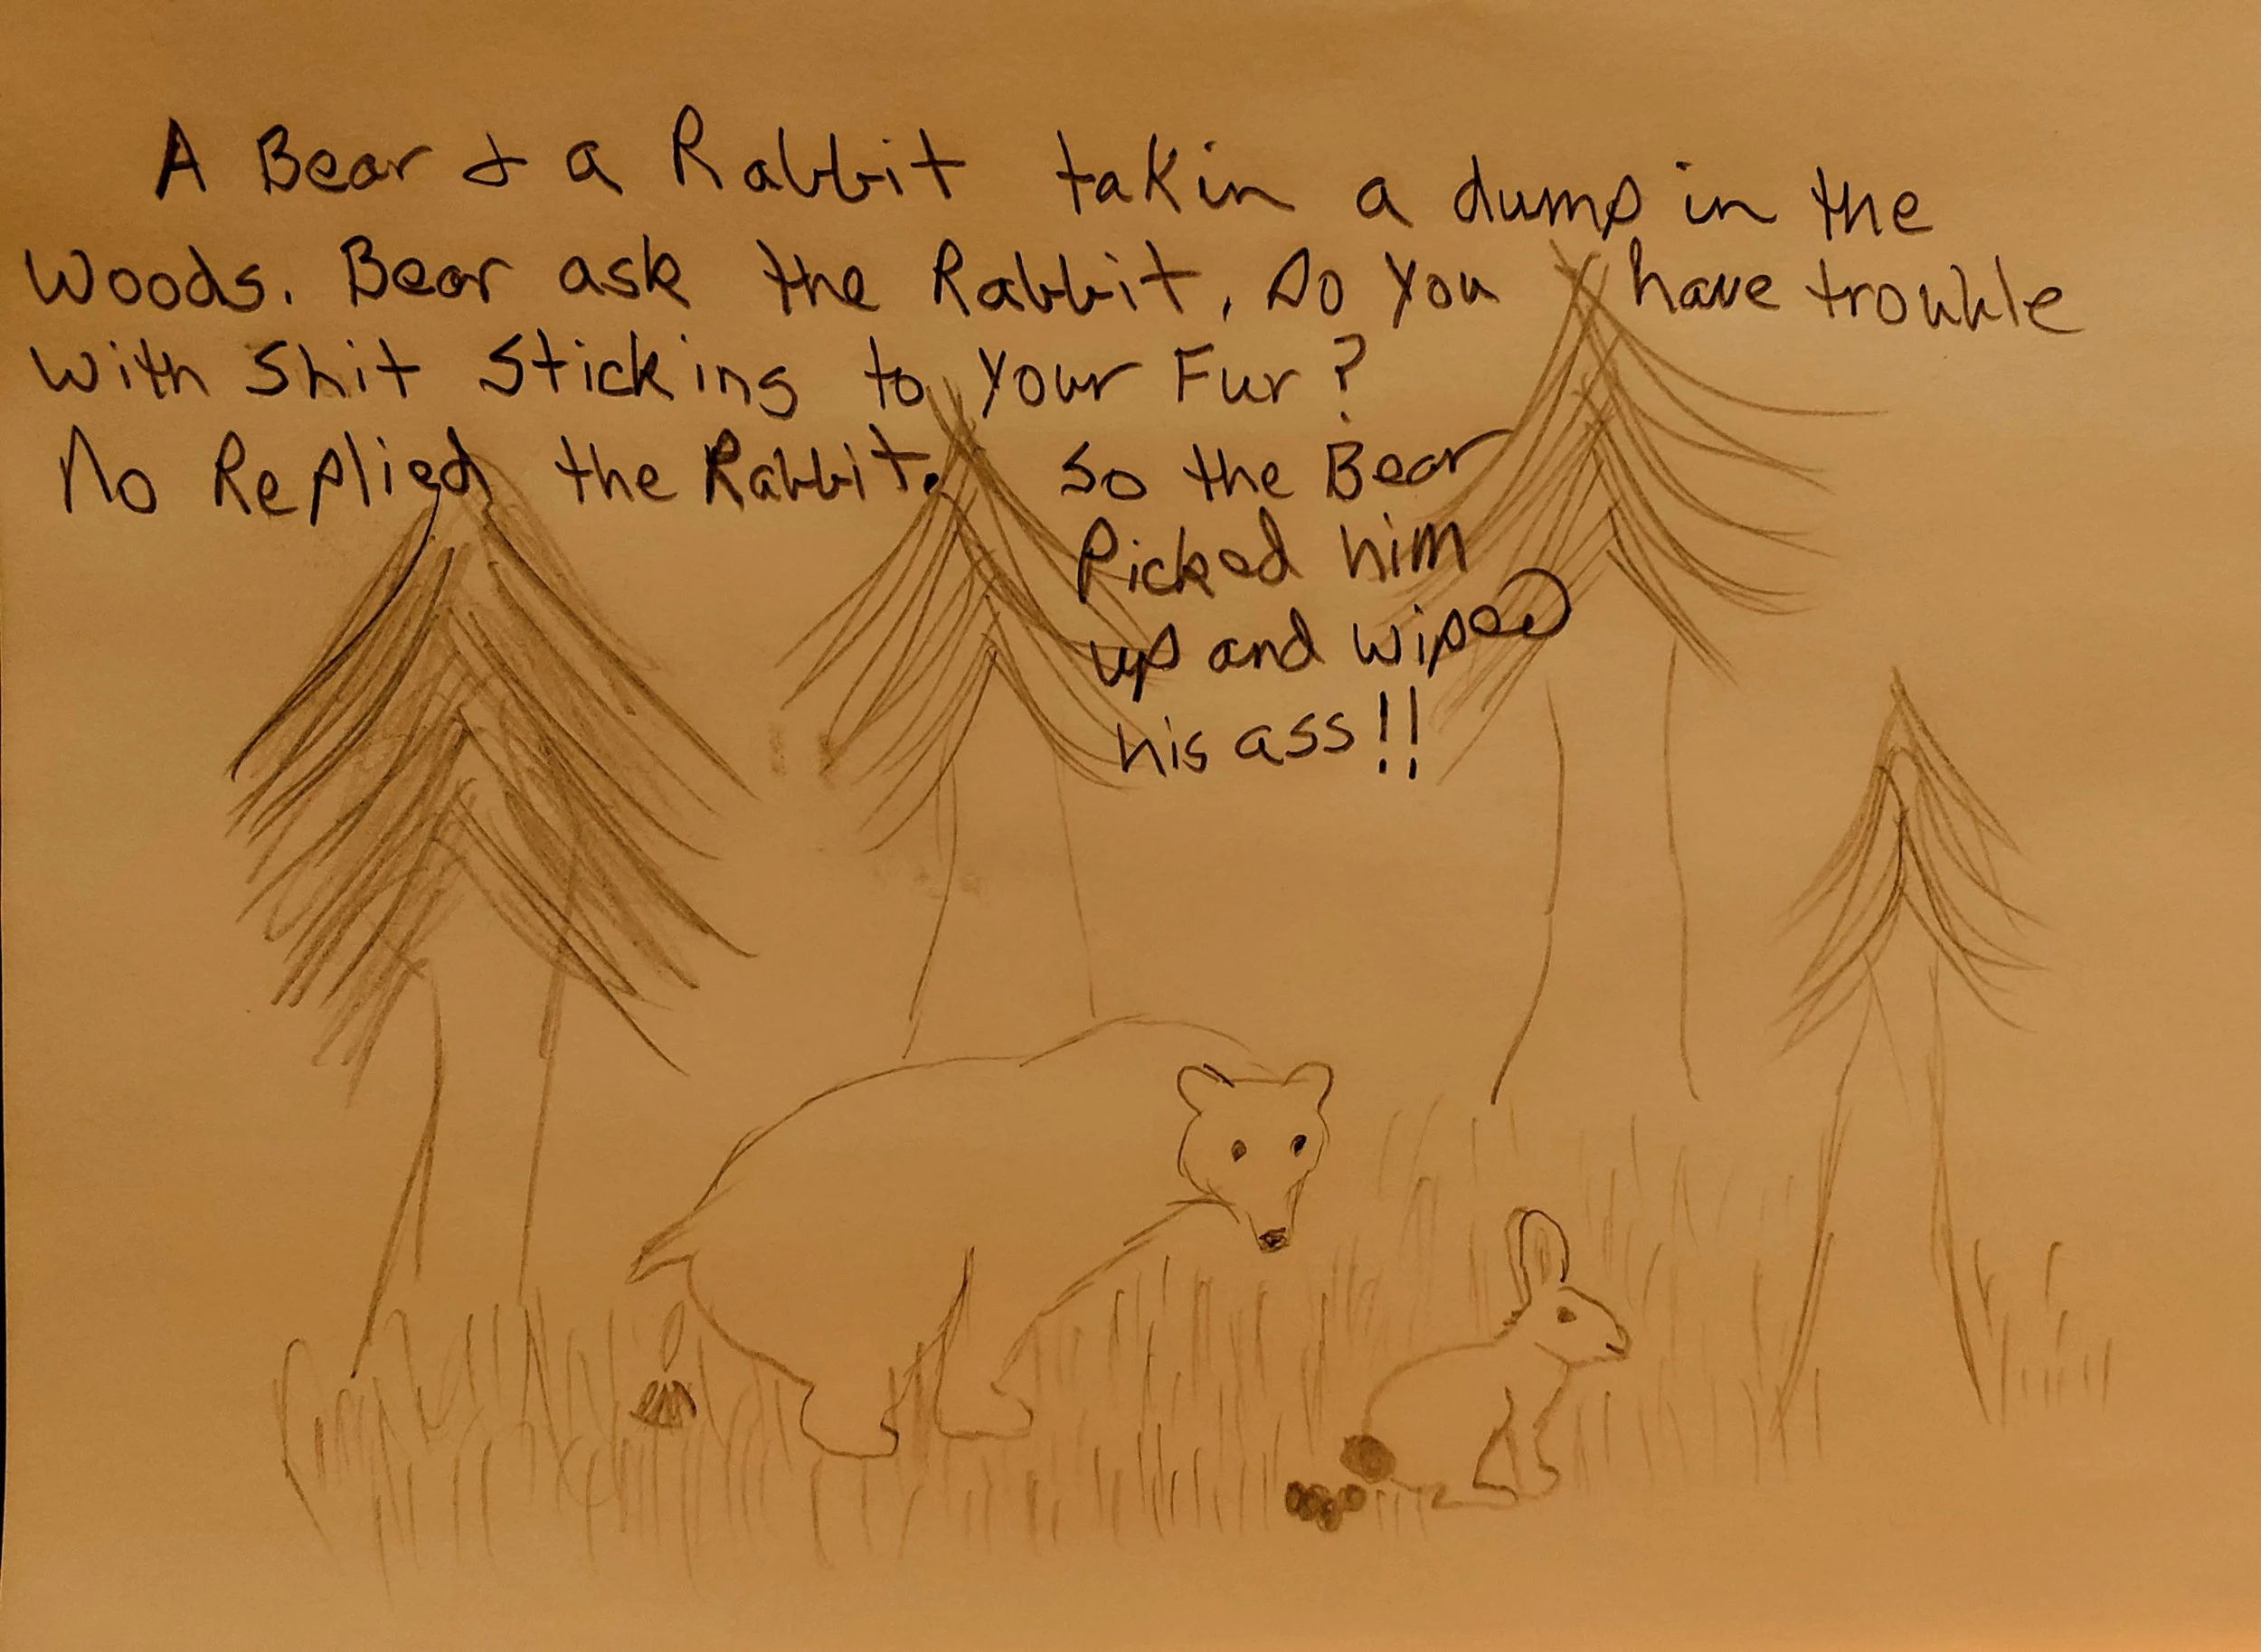 A Bear & a Rabbit takin a dump in the
Woods. Bear ask the Rabbit, Do You have trouble
With Shit Sticking to Your Fur?
No Replied the Rabbit. So the Bear
Picked him
up and wiped
his ass!!